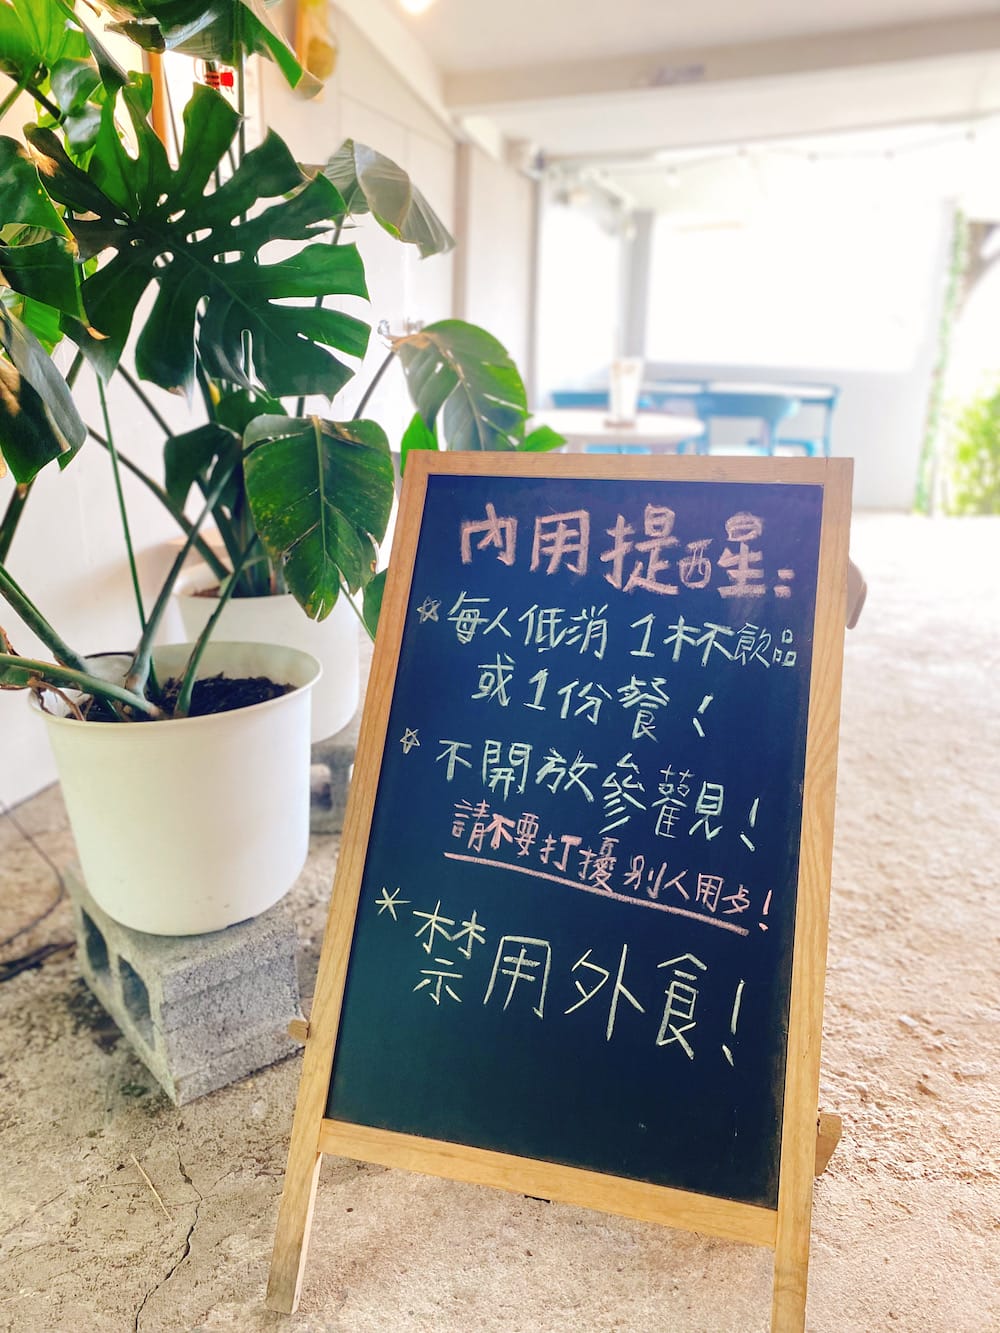 內用提醒:
☆每人低消1杯飲品
或1份餐!
☆不開放參觀!
請不要打擾別人用歺!
*禁用外食!